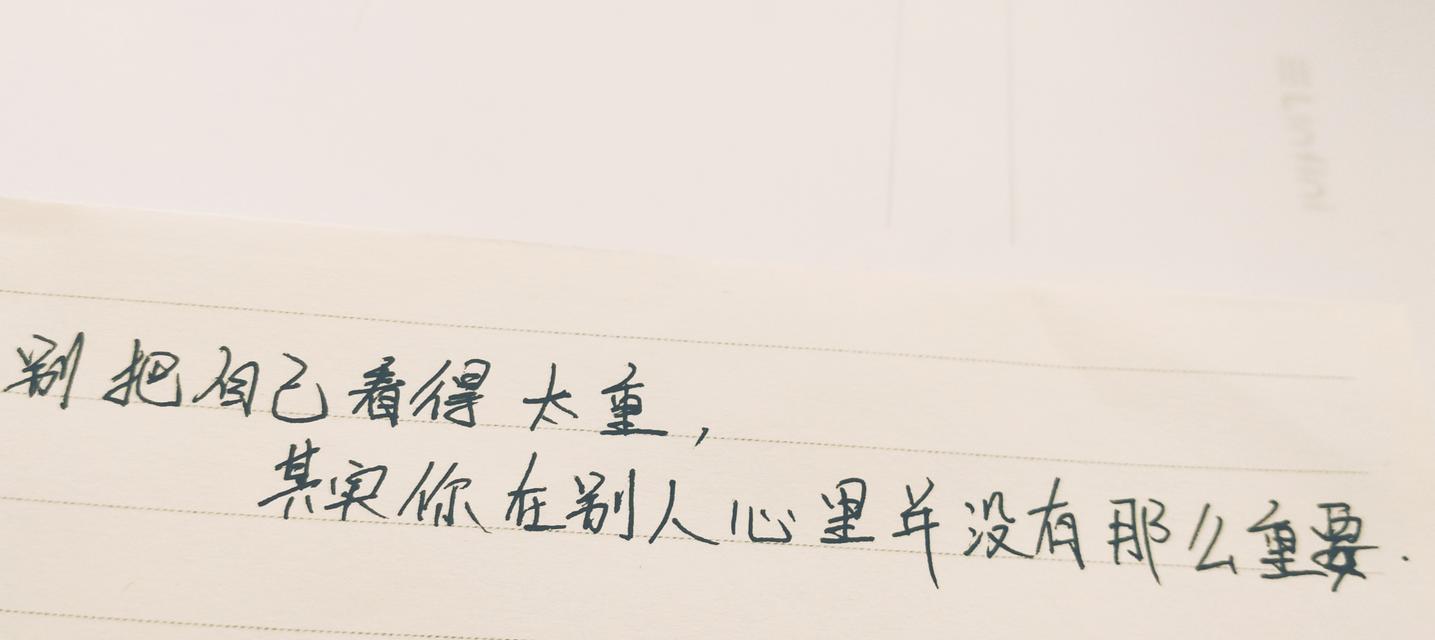 别把自己看得太重,
其实你在别人心里并没有那么重要.